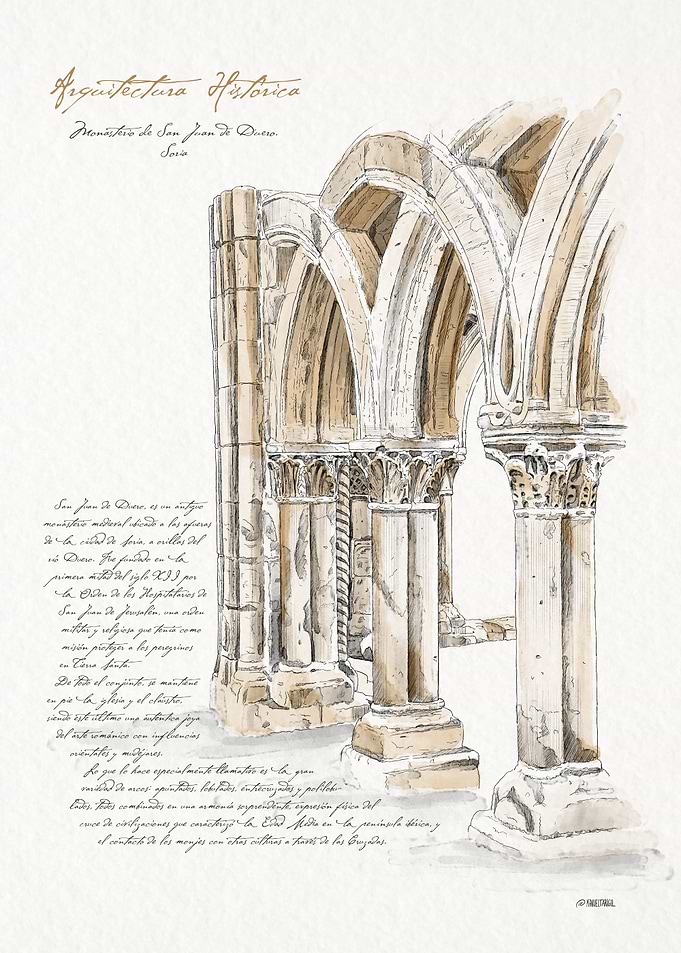 Arquitectura Histórica
Monasterio de San Juan de Duero.
Soria
San Juan de Duero, es un antiguo
monasterio medieval ubicado a las afueras
de la ciudad de Soria, a orillas del
río Duero. Fue fundado en la
primera mitad del siglo XII por
la Orden de los Hospitalarios de
San Juan de Jerusalén, una orden
militar y religiosa que tenía como
misión proteger a los peregrinos
en Tierra Santa.
De todo el conjunto, se mantiene
en pie la iglesia y el claustro,
siendo este último una auténtica joya
del arte románico con influencias
orientales y mudéjares.
Lo que lo hace especialmente llamativo es la gran
variedad de arcos: apuntados, lobulados, entrecruzados y polilobu-
lados, todos combinados en una armonía sorprendente, expresión física del
cruce de civilizaciones que caracterizó la Edad Media en la península ibérica, y
el contacto de los monjes con otras culturas a través de las Cruzadas.